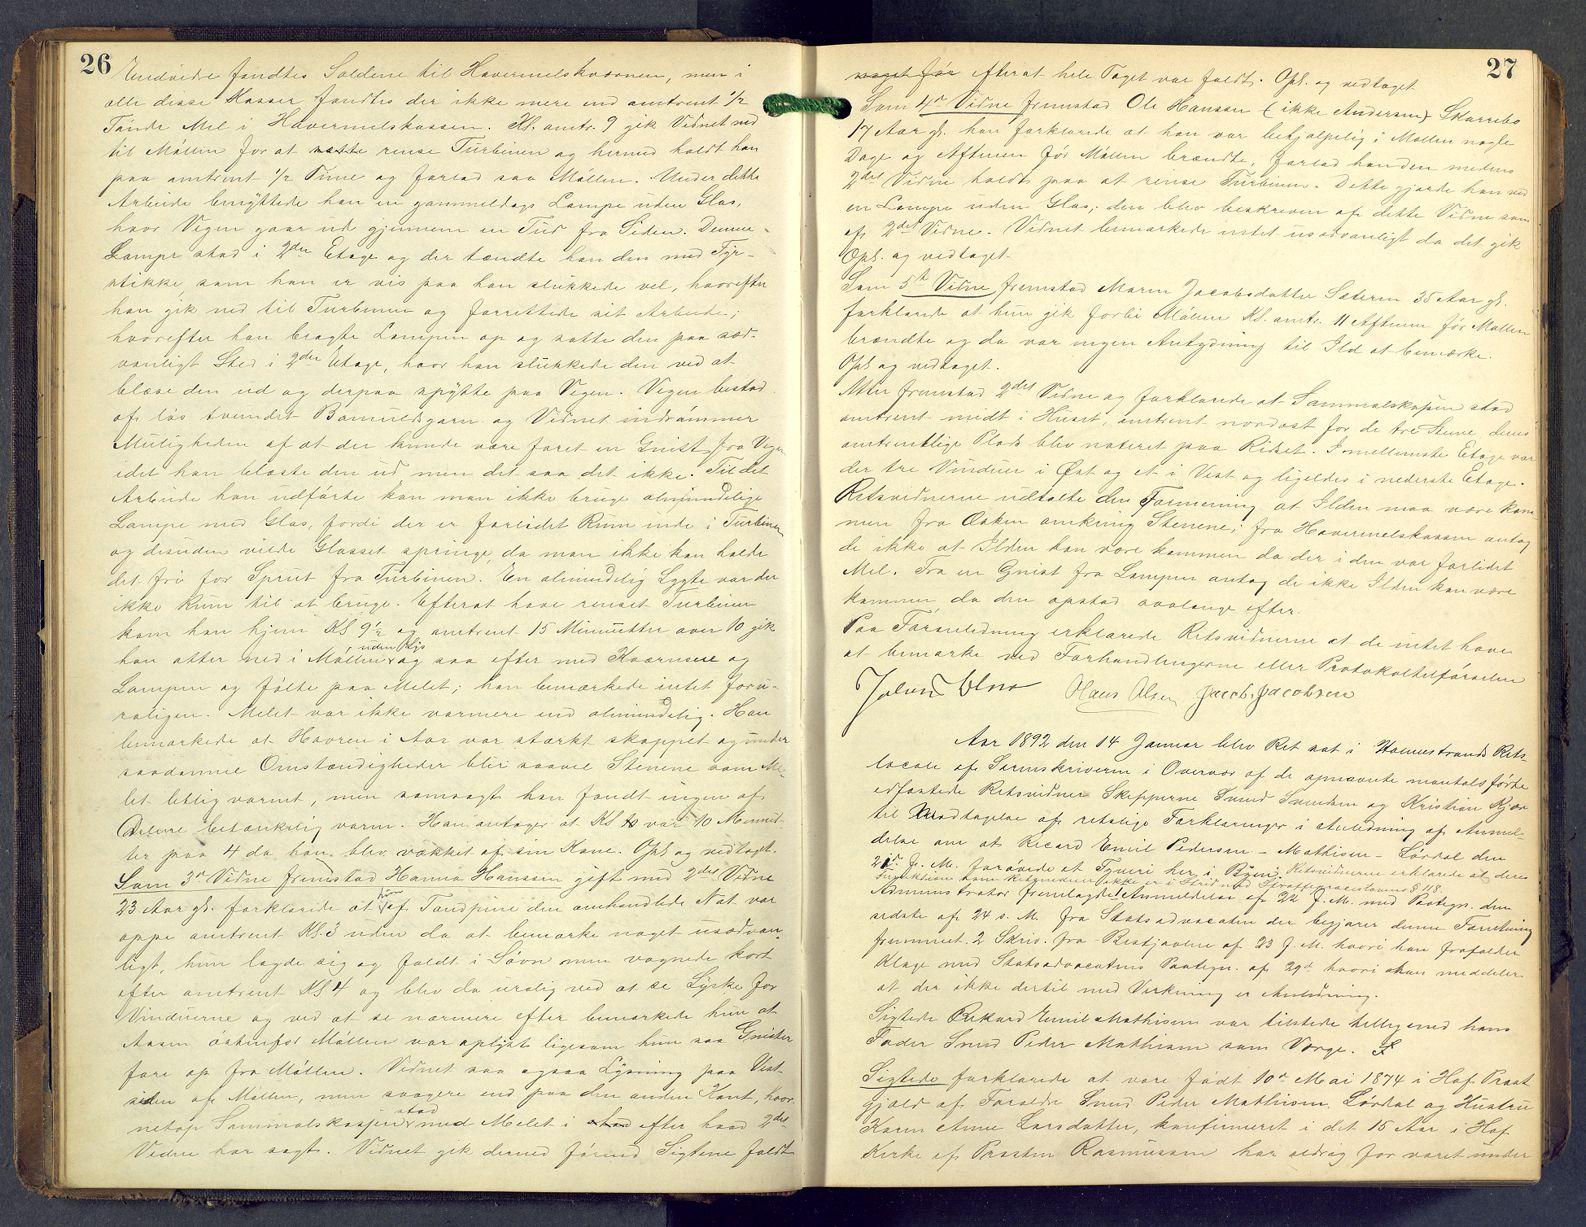 26
Endvidere fandtes Soldene til Havremelskværnen, men i
alle disse Kasser fandtes der ikke mere end omtrent 1/2
Tønde Mel i Havremelskassen. Kl. omtr. 9 gik Vidnet ned
til Møllen for at rense Turbinen og hermed holdt han
paa omtrent 1/2 Time og forlod saa Møllen. Under dette
Arbeide benyttede han en gammeldags Lampe uden Glas,
hvor Vegen gaar ud gjennem en Tud fra Siden. Denne
Lampe stod i 2den Etage og der tændte han den med Fyr-
stikke som han er vis paa han slukkede vel, hvorefter
han gik ned til Turbinen og forrettede sit Arbeide;
hvorefter han bragte Lampen op og satte den paa sæd-
vanligt Sted i 2den Etage, hvor han slukkede den ved at
blæse den ud og derpaa spytte paa Vegen. Vegen bestod
af løs tvundet Bomuldsgarn og Vidnet indrømmer
Muligheden af at der kunde være faret en Gnist fra Vegen
idet han blæste den ud men det saa det ikke. Til det
Arbeide han udførte kan man ikke bruge almindelige
Lampe med Glas, fordi der er forlidet Rum inde i Turbinen
og desuden vilde Glasset springe, da man ikke kan holde
det fri for Sprut fra Turbinen. En almindelig Lygte var der
ikke Rum til at bruge. Efterat have renset Turbinen
kom han hjem Kl 9 1/2 og omtrent 15 Minutter over 10 gik
han atter ned i Møllen uden Lys og saa efter med Kværnene og
Lampen og følte paa Melet; han bemærkede intet foru-
roligen. Melet var ikke varmere end almindelig. Han
bemærkede at Havren i Aar var stærkt skoppet og under
saadanne Omstændigheder blir saavel Stenene som Me-
let letlig varmt, men somsagt han fandt ingen af
Delene betænkelig varm. Han antager at Kl var 10 Minut-
ter paa 4 da han blev vækket af sin Kone. Opl. og vedtaget.
Som 3de Vidne fremstod Hanna Hansen gift med 2det Vidne
23 Aar gl. forklarede at hun af Tandpine den omhandlede Nat var
oppe omtrent Kl. 3 uden da at bemærke noget usædvan-
ligt, hun lagde sig og faldt i Søvn men vognede kort
efter omtrent Kl 4 og blev da urolig ved at se Lyske for
Vinduerne og ved at se nærmere efter bemærkede hun at
Aasen østenfor Møllen var oplyst ligesom hun saa Gnister
fare op fra Møllen. Vidnet saa ogsaa Lysning paa Vest-
siden af Møllen, men svagere end paa den anden Kant, hvor
netop Sammalskassen stod med Melet i efter hvad 2det
Vidne har sagt. Vidnet gik derned førend Sigtene faldt
27
noget før efterat hele Taget var faldt. Opl. og vedtaget
Som 4de Vidne fremstod Ole Hansen (ikke Andersen) Skarrebo
17 Aar gl. han forklarede at han var behjælpelig i Møllen nogle
Dage og Aftenen før Møllen brændte, forlod han den medens
2det Vidne holdt paa at rense Turbinen. Dette gjorde han ved
en Lampe uden Glas, den blev beskreven af dette Vidne som
af 2det Vidne. Vidnet bemærkede intet usædvanligt da det gik
Opl. og vedtaget.
Som 5te Vidne fremstod Maren Jacobsdatter Sæteren 35 Aar gl.
forklarede at hun gik forbi Møllen Kl. omtr. 11 Aftenen før Møllen
brændte og da var ingen Antydning til Ild at bemærke.
Opl og vedtaget.
Atter fremstod 2det Vidne og forklarede at Sammalskassen stod
omtrent midt i Huset, omtrent nordost for de tre Stene, dens
omtrentlige Plads blev noteret paa Ridset. I mellemste Etage var
der tre Vinduer i Øst og et i Vest og ligeledes i nederste Etage.
Retsvidnerne udtalte den Formening at Ilden maa være kom-
men fra Oaken omkring Stenene; fra Havremelskassen antog
de ikke at Ilden kan være kommen da der i den var forlidet
Mel. Fra en Gnist fra Lampen antog de ikke Ilden kan være
kommen da den opstod saalænge efter.
Paa Foranledning erklærede Retsvidnerne at de intet have
at bemærke ved Forhandlingerne eller Protokoltilførselen
Hans Olsen Jacob Jacobsen
Aar 1892 den 14 Januar blev Ret sat i Holmestrands Rets-
locale af Sorenskriveren i Overvær af de opnævnte mandtalsførte
edfæstede Retsvidner Skipperne Svend Svendsen og Kristian Kjær
til Modtagelse af retslige Forklaringer i Anledning af Anmel-
delse om at Ricard Emil Pedersen – Mathisen – Lørdal den
21de f. M. forøvede et Tyveri her i Byen. Retsvidnerne erklærede at deres
Funktion som Retsvidner ikke er i Strid med Straffeproceslovens § 118.
Administrator fremlagde 1 Anmeldelse af 22 f. M. med Paategn. den
sidste af 24 s. M. fra Statsadvocaten der begjærer denne Forretning
fremmet. 2 Skriv. fra Bestjaalne af 23 f. M. hvori han frafalder
Klage med Statsadvocatens Paategn. af 29de hvori han meddeler
at der ikke dertil med Virkning er Anledning.
Sigtede Rikard Emil Mathisen var tilstede tilligemed hans
Fader Svend Peder Mathisen som Værge.
Sigtede forklarede at være født 10de Mai 1874 i Hof Præst-
gjæld af Foræld. Svend Peder Mathisen Lørdal og Hustru
Karen Anne Larsdatter, konfirmeret i det 15 Aar i Hof
Kirke af Præsten Rasmussen har aldrig før været under